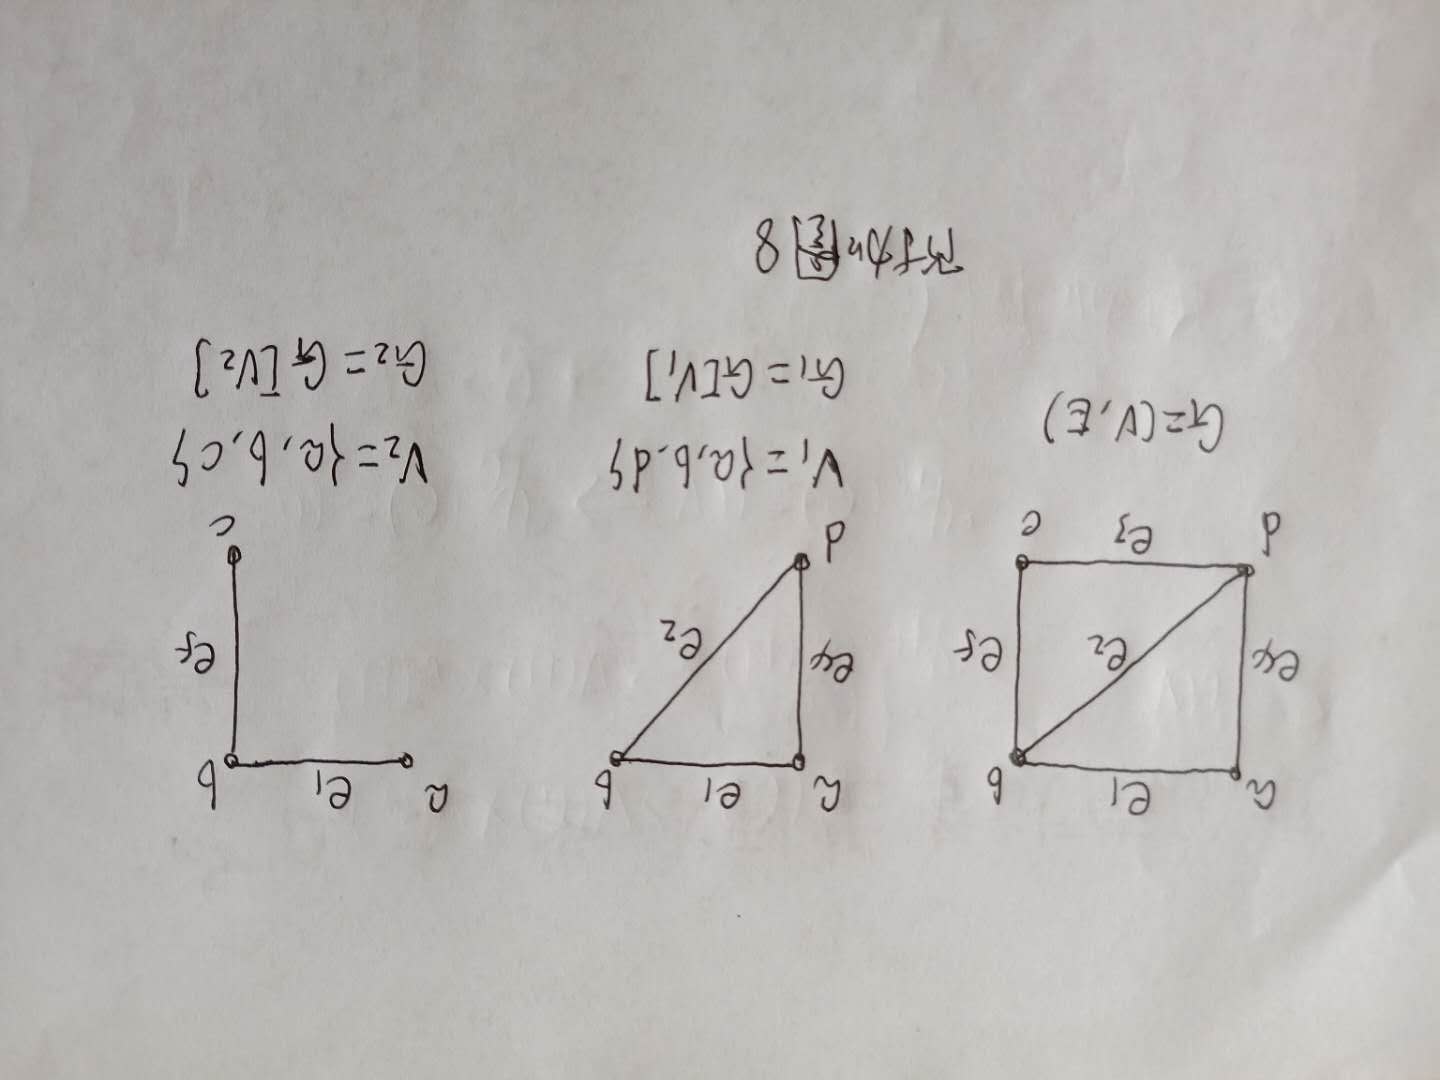 a e1 b
e4 e2 e5
d e3 c
G=(V,E)
a e1 b
e4 e2
d
V1={a,b,d}
G1=G[V1]
a e1 b
e5
c
V2={a,b,c}
G2=G[V2]
附加图8